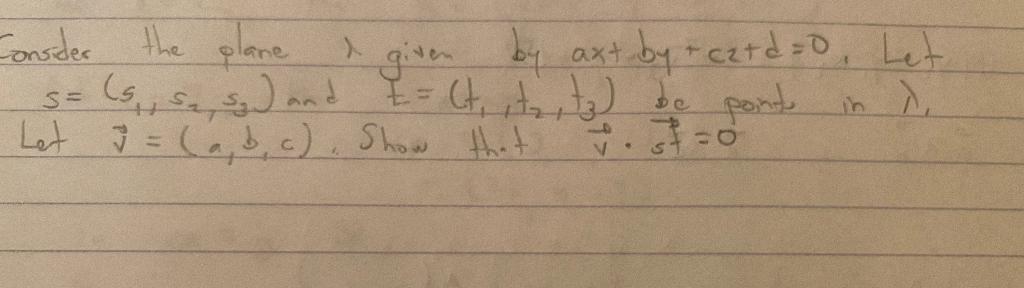 Consider the plane λ given by ax+by+cz+d=0. Let
s=(s₁, s₂, s₃) and t=(t₁, t₂, t₃) be points in λ.
Let v⃗=(a,b,c). Show that v⃗·st⃗=0